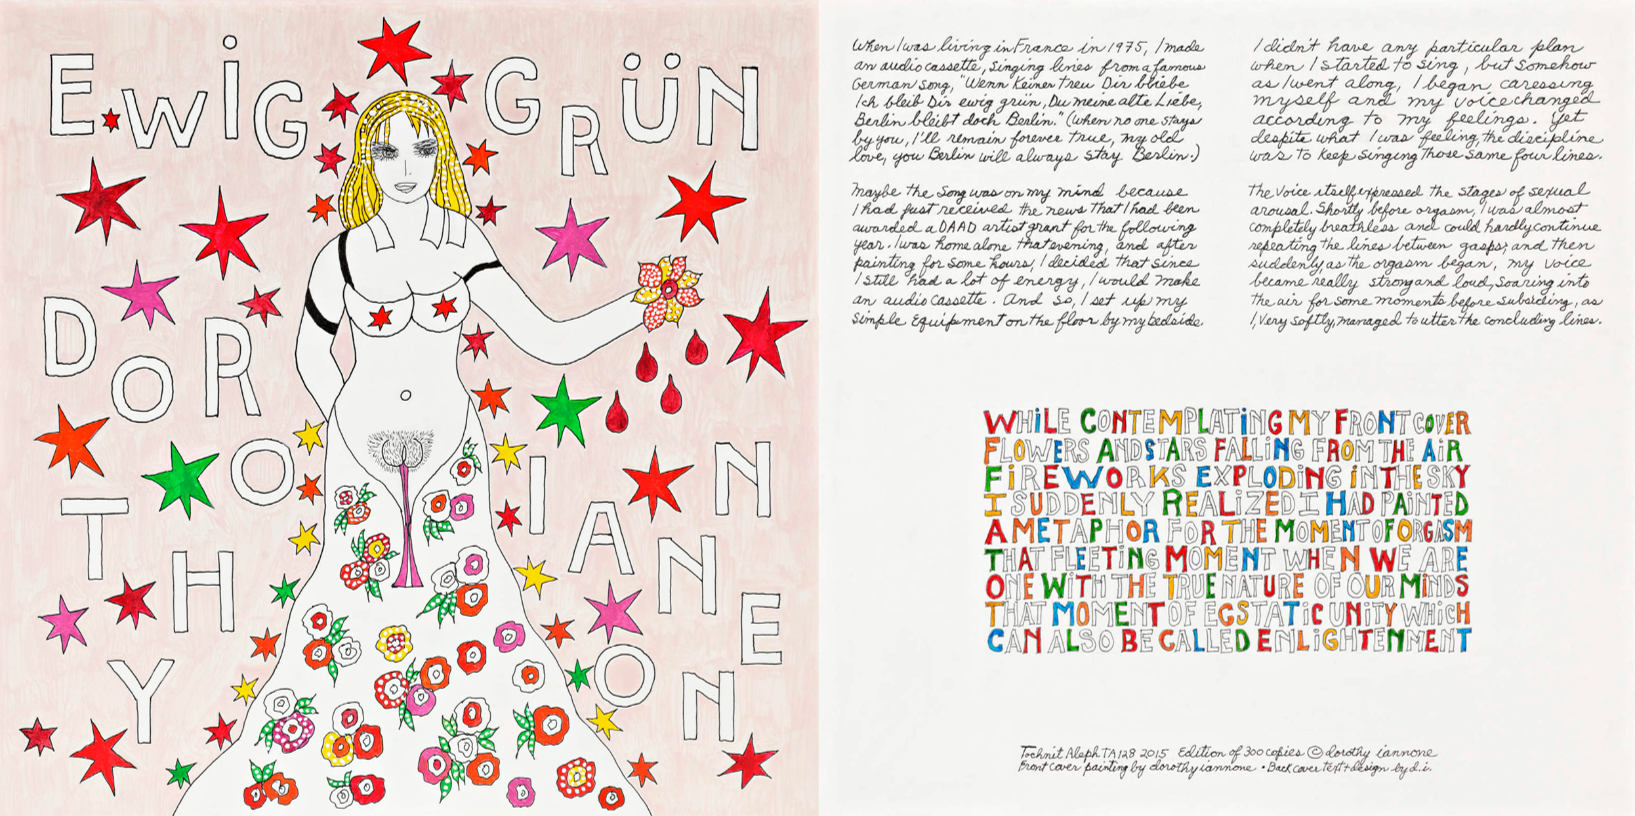 EWiG GRÜN
DOROTHY IANNONE
When I was living in France in 1975, I made
an audio cassette, singing lines from a famous
German song, "Wenn Keiner treu Dir bliebe
Ich bleib Dir ewig grün, Du meine alte Liebe,
Berlin bleibt doch Berlin." (When no one stays
by you, I'll remain forever true, my old
love, you Berlin will always stay Berlin.)
Maybe the song was on my mind because
I had just received the news that I had been
awarded a DAAD artist grant for the following
year. I was home alone that evening, and after
painting for some hours, I decided that since
I still had a lot of energy, I would make
an audio cassette. And so, I set up my
simple equipment on the floor by my bedside.
I didn't have any particular plan
when I started to sing, but somehow
as I went along, I began caressing
myself and my voice changed
according to my feelings. Yet
despite what I was feeling, the discipline
was to keep singing those same four lines.
The voice itself expressed the stages of sexual
arousal. Shortly before orgasm, I was almost
completely breathless and could hardly continue
repeating the lines between gasps; and then
suddenly, as the orgasm began, my voice
became really strong and loud, soaring into
the air for some moments before subsiding, as
I, very softly, managed to utter the concluding lines.
WHiLE CONTEMPLATiNG MY FRONT COVER
FLOWERS AND STARS FALLiNG FROM THE AiR
FiREWORKS EXPLODiNG iN THE SKY
I SUDDENLY REALiZED I HAD PAiNTED
A METAPHOR FOR THE MOMENT OF ORGASM
THAT FLEETiNG MOMENT WHEN WE ARE
ONE WiTH THE TRUE NATURE OF OUR MiNDS
THAT MOMENT OF ECSTATiC UNiTY WHiCH
CAN ALSO BE CALLED ENLiGHTENMENT
Tochnit Aleph TA128 2015 Edition of 300 copies © dorothy iannone
Front cover painting by dorothy iannone • Back cover text + design by d.i.